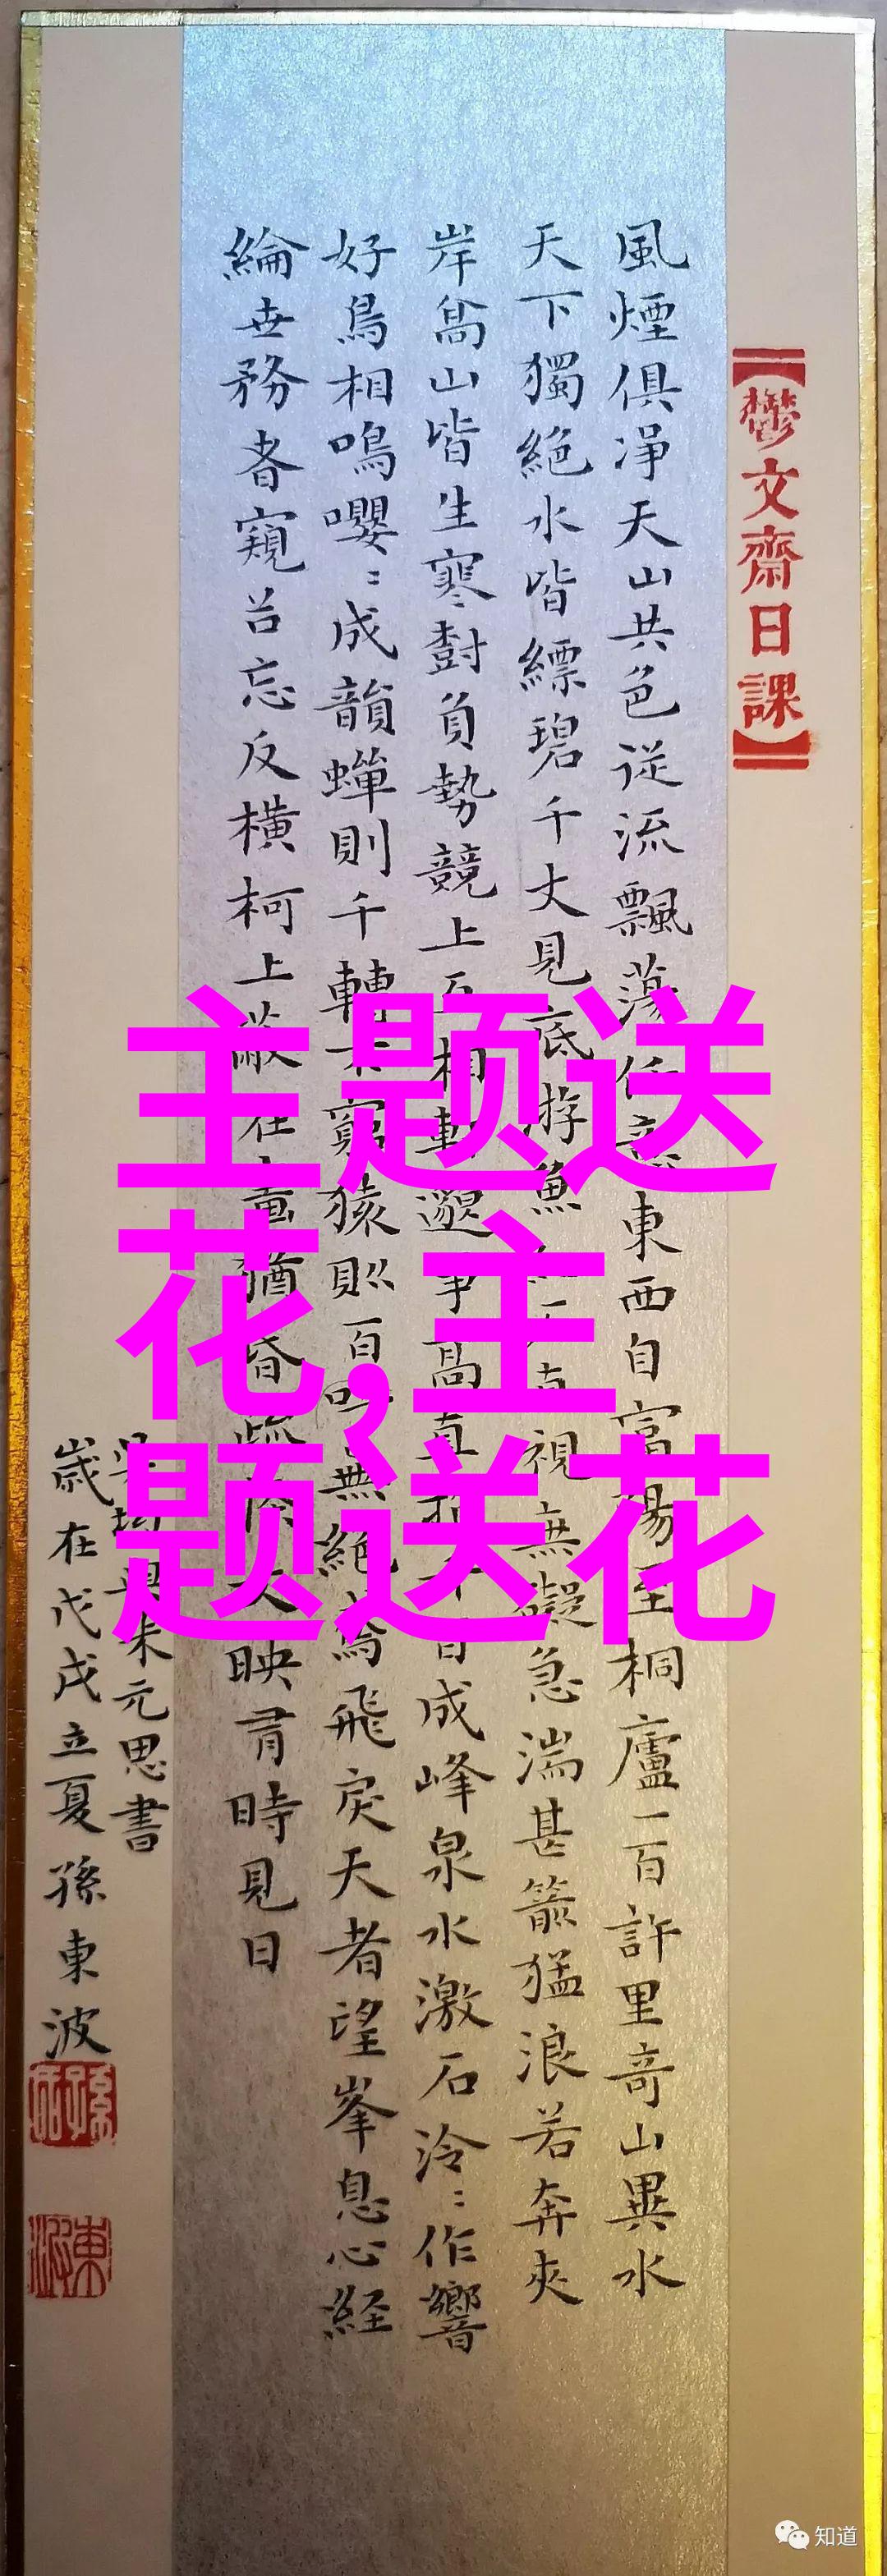 【鬱文齋日課】
風煙俱淨天山共色從流飄蕩任意東西自富陽至桐廬一百許里奇山異水
天下獨絕水皆縹碧千丈見底游魚細石直視無礙急湍甚箭猛浪若奔夾
岸高山皆生寒樹負勢競上互相軒邈爭高直指千百成峰泉水激石泠〻作響
好鳥相鳴嚶〻成韻蟬則千轉不窮猿則百叫無絕鳶飛戾天者望峯息心経
綸世務者窺谷忘反橫柯上蔽在晝猶昏疏條交映有時見日
吳均與朱元思書
歲在戊戌立夏孫東波
主题送
花,主
题送花
知道